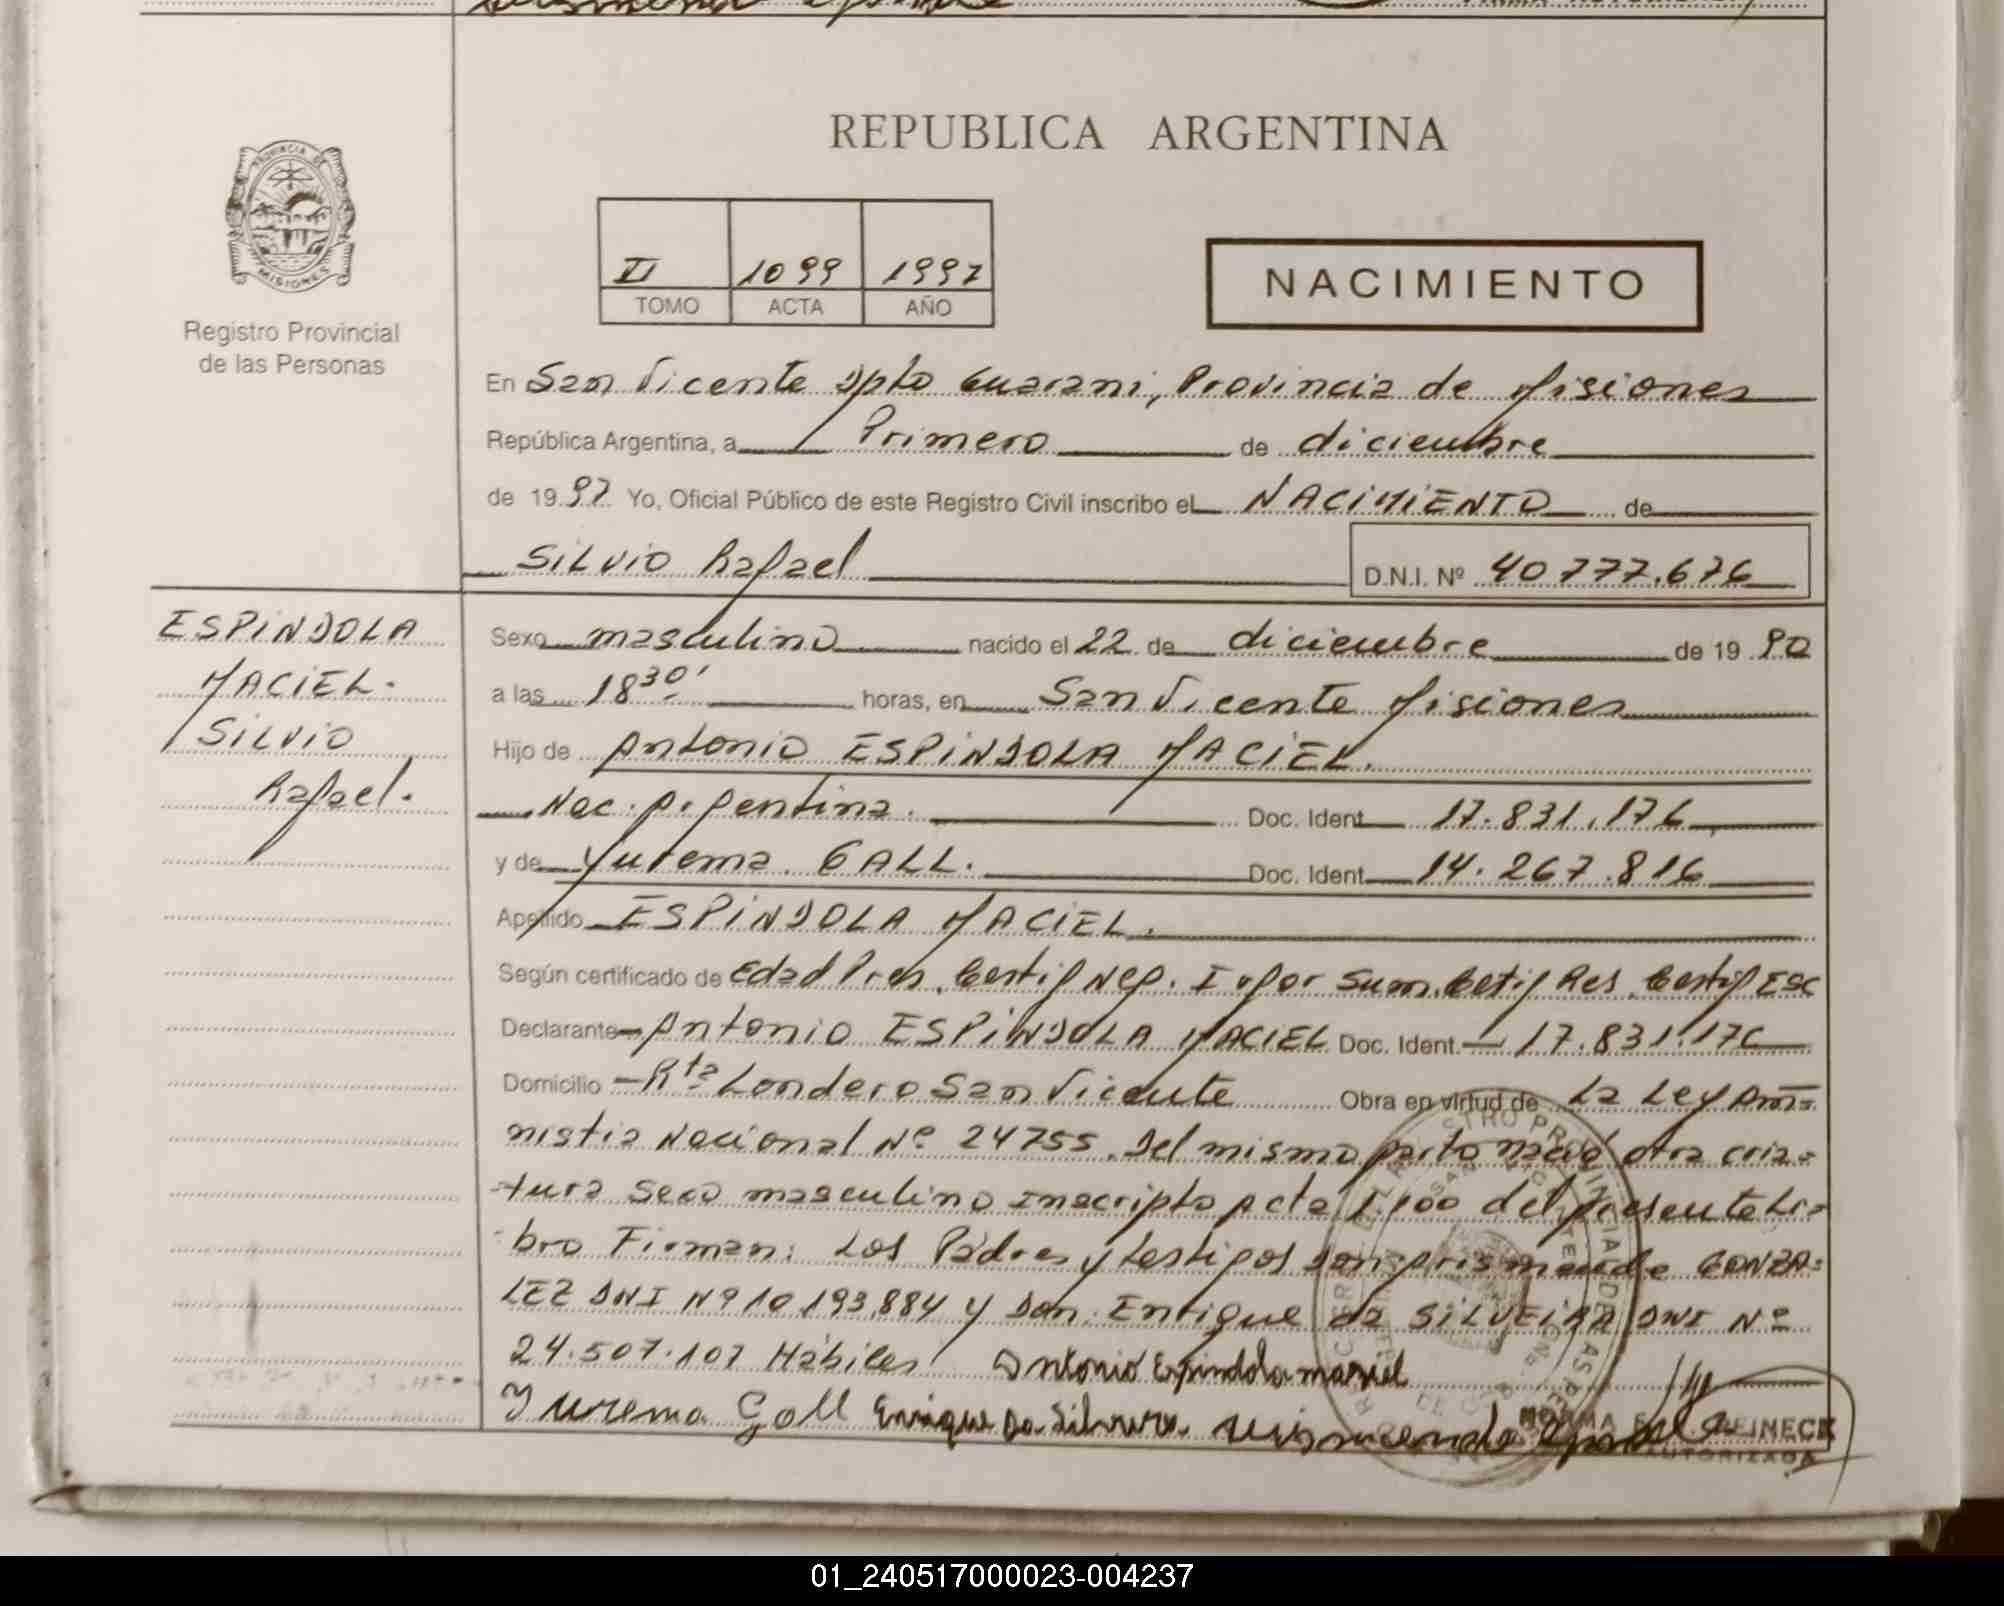 REPUBLICA ARGENTINA
PROVINCIA DE
MISIONES
Registro Provincial
de las Personas
II 1099 1997
TOMO ACTA AÑO
NACIMIENTO
En San Vicente Dpto Guarani, Provincia de Misiones
República Argentina, a Primero de diciembre
de 1997 Yo, Oficial Público de este Registro Civil inscribo el NACIMIENTO de
SILVIO Rafael D.N.I. Nº 40777.676
ESPINDOLA
MACIEL.
SILVIO
Rafael.
Sexo masculino nacido el 22 de diciembre de 1990
a las 18 30' horas, en San Vicente Misiones
Hijo de Antonio ESPINDOLA MACIEL.
Nac. Argentina. Doc. Ident 17.831.176
y de Yurema GALL. Doc. Ident. 14.267.816
Apellido ESPINDOLA MACIEL.
Según certificado de Edad Pres. Certif Neg. Infor Sum. Cetif Res. Certif Esc
Declarante Antonio ESPINDOLA MACIEL Doc. Ident. 17.831.176
Domicilio Rta Londero San Vicente Obra en virtud de La Ley Am-
nistia Nacional Nº 24755. Del mismo parto nació otra cria-
tura sexo masculino inscripto Acta 1.100 del presente Li-
bro Firman: Los Padres y testigos Don Prismande GONZA-
LEZ DNI Nº 10 193.884 y Don Enrique da SILVEIRA DNI Nº
24.507.107 Habiles Antonio Espindola masiel
Yurema Goll Enrique Da Silvera
AUTORIZADA
01_240517000023-004237